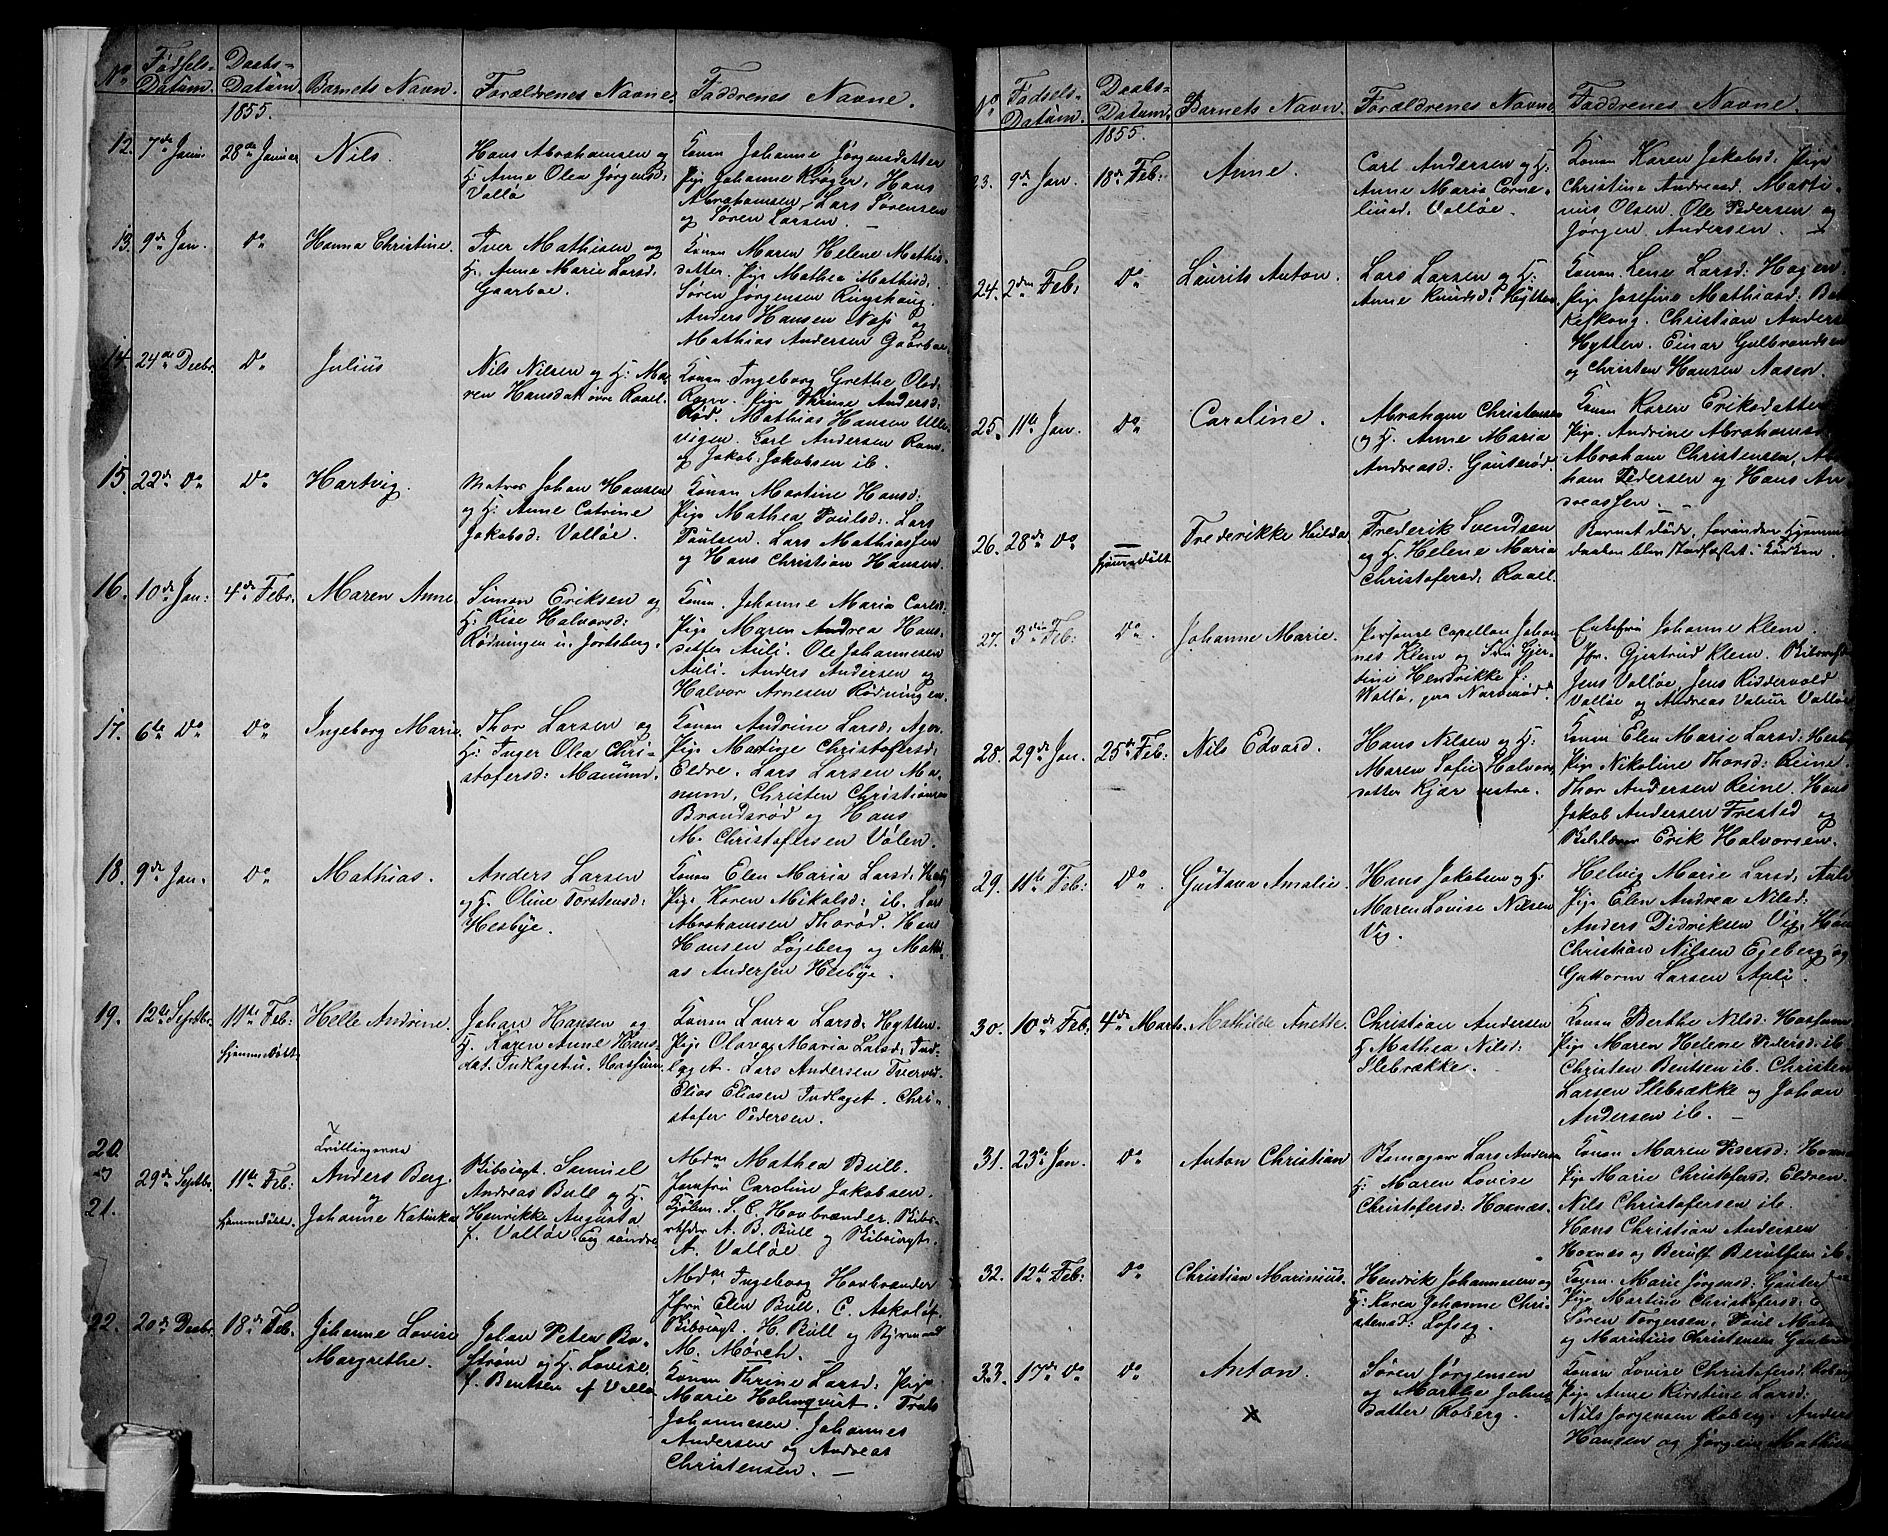 No Fødsels- Datum. Daabs- Datum. Barnets Navn. Forældrenes Navne. Faddrenes Navne.
1855.
12. 7de Janu. 28de Januar Nils. Hans Abrahamsen og
H: Anne Olea Jørgensd:
Valløe
Konen Johanne Jørgensdatter
Pige Johanne Krøger, Hans
Abrahamsen, Lars Sørensen
og Søren Larsen.
13. 9de Jan. do Hanna Christine. Iver Mathisen og
H: Anne Marie Larsd:
Gaarboe.
Konen Maren Helene Mathis
datter. Pige Mathea Mathisd:
Søren Jørgensen Ringshaug.
Anders Hansen Næs og
Mathias Andersen Gaarboe.
14. 24de Decbr. do Julius Nils Nilsen og H: Ma-
ren Hansdat. øvre Raael.
Konen Ingeborg Grethe Olsd.
Pige Thrine Andersd:
Rød. Mathias Hansen
Carl Andersen
og Jakob Jakobsen ib.
15. 22de do do Hartvig. Matros Johan Hansen
og H: Anne Catrine
Jakobsd: Valløe.
Konen Martine Hansd:
Pige Mathea Paulsd: Lars
Paulsen. Lars Mathiassen
og Hans Christian Hansen.
16. 10de Jan: 4de Febr. Maren Anne. Simon Eriksen og
H: Rise Halvorsd:
Rødningen u. Jarlsberg.
Konen Johanne Maria Carlsd:
Pige Maren Andrea Hans-
datter Auli. Ole Johannesen
Auli. Anders Andersen og
Halvor Arnesen Rødningen
17. 6te do do Ingeborg Marie. Thor Larsen og
H: Inger Olea Chri-
stofersd: Manum.
Konen Andrine Larsd:
Pige Martine Christofersd:
Eldre. Lars Larsen Ma-
num, Christen Christiansen
Brandsrød og Hans
M. Christofersen Valen.
18. 9de Jan. do Mathias. Anders Larsen
og H: Oline Torstensd:
Hesbye.
Konen Elen Maria Larsd:
Pige Karen Mikalsd: ib. Lars
Abrahamsen Thorød. Hans
Hansen Løgeberg og Mathi-
as Andersen Hesbye.
19. 12te Septbr. 11te Feb: Helle Andrine. Johan Hansen og
Hjemmedøbt
H. Karen Anne Hans-
dat. Indlaget u. Hassum
Konen Laura Larsd: Hytten.
Pige Olava Maria Larsd: Ind-
laget. Lars Andersen
Elias Eliasen Indlaget. Chri-
stofer Pedersen.
20. og 21. 29de Septbr. 11te Feb: Hjemmedøbte.
Tvillingerne
Anders Bug.
og
Johanne Katinka
Samuel
Andreas Bull og H.
Henrikke Augusta
f. Valløe. Eig søndre
Mdm Mathea Bull.
Jomfru Caroline Jakobsen.
S. C. Hovbrænder.
A. B. Bull og
A. Valløe
Mdm Ingeborg Hovbrænder
Jfru Elen Bull. C.
H. Bull og
M. Mørch.
22. 20de Decbr. 18de Feb. Johanne Lovise
Margrethe.
Johan Peter Bo-
strøm og H. Lovise
f. Bentsen af Valløe
Konen Thrine Larsd: Pige
Marie Holmqvist.
Johannesen. Johannes
Andersen og Andreas
Christensen.
No Fødsels- Datum. Daabs- Datum. Barnets Navn Forældrenes Navne Faddrenes Navne.
1855.
23. 9de Jan. 18de Feb: Anne. Carl Andersen og H:
Anne Maria Corne-
liusd. Valløe.
Konen Karen Jakobsd: Pige
Christine Andreasd. Marti-
nius Olsen. Ole Pedersen og
Jørgen Andersen.
24. 2den Feb: do Laurits Anton. Lars Larsen og H:
Anne Knudsd: Hytten.
Konen Lene Larsd: Hagen
Pige Josefine Mathiasd:
Christian Anders
Hytten. Einar Gulbrandsen
og Christen Hansen Aasen.
25. 11te Jan. do Caroline. Abraham Christensen
og H. Anne Maria
Andreasd: Gauterød.
Konen Karen Eriksdatter
Pige Andrine Abrahamsd.
Abraham Christensen, Abra
ham Pedersen og Hans An-
dreassen.
26. 28de do — Hjemmedøbt Frederikke Hulda Frederik Svendsen
og H. Helene Maria
Christofersd: Raael.
Barnet døde, forinden Hjemme
daaben blev stadfæstet i Kirken.
27. 3die Feb: do Johanne Marie. Personel Capellan Johan-
nes Klem og Fru Gjer-
dine Hendrikke f.
Valløe, paa Narverød.
Enkefru Johanne Klem.
Jfr. Gjertrud Klem.
Jens Valløe, Jens Riddervold
Valløe og Andreas Valløe
28. 29de Jan. 25de Feb: Nils Edvard. Hans Nilsen og H:
Maren Sofie Halvors
datter Kjær vestre.
Konen Elen Marie Larsd:
Pige Nikoline Thorsd: Reine.
Thor Andersen Reine. Hans
Jakob Andersen Trestad og
Erik Halvorsen.
29. 11te Feb: do Gustava Amalie. Hans Jakobsen og H:
Maren Lovise Nilsen
Vig.
Helvig Marie Larsd: Auli
Pige Elen Andrea Nilsd:
Anders Didriksen Vig, Hans
Christian Nilsen Egeberg og
Guttorm Larsen Auli.
30. 10de Feb. 4de Marts. Mathilde Anette. Christian Andersen
H. Mathea Nilsd:
Slebrække.
Konen Berthe Nilsd: Hassum
Pige Maren Helene Pedersd: ib
Christen Bentsen ib. Christen
Larsen Slebrække og Johan
Andersen ib.
31. 23de Jan. do Anton Christian Lars Andersen
H. Maren Lovise
Christofersd: Hoxnæs.
Konen Maren Pedersd:
Pige Marie Christofersd: Eldren.
Nils Christofersen ib.
Hans Christian Andersen
Hoxnæs og Berulf Berulfsen ib.
32. 12te Feb: do Christian Marinius. Hendrik Johannesen og
H: Karen Johanne Chri-
stensd: Lofseg.
Konen Marie Jørgensd:
Pige Martine Christofersd:
Søren Torgersen. Paul
og Marinius Christensen
33. 17de do do Anton. Søren Jørgensen
og Marthe Johns
datter Roberg.
Konen Lovise Christofersd: Roberg
Pige Anne Kirstine Larsd:
Nils Jørgensen Roberg. Anders
Hansen og Jørgen Mathisen